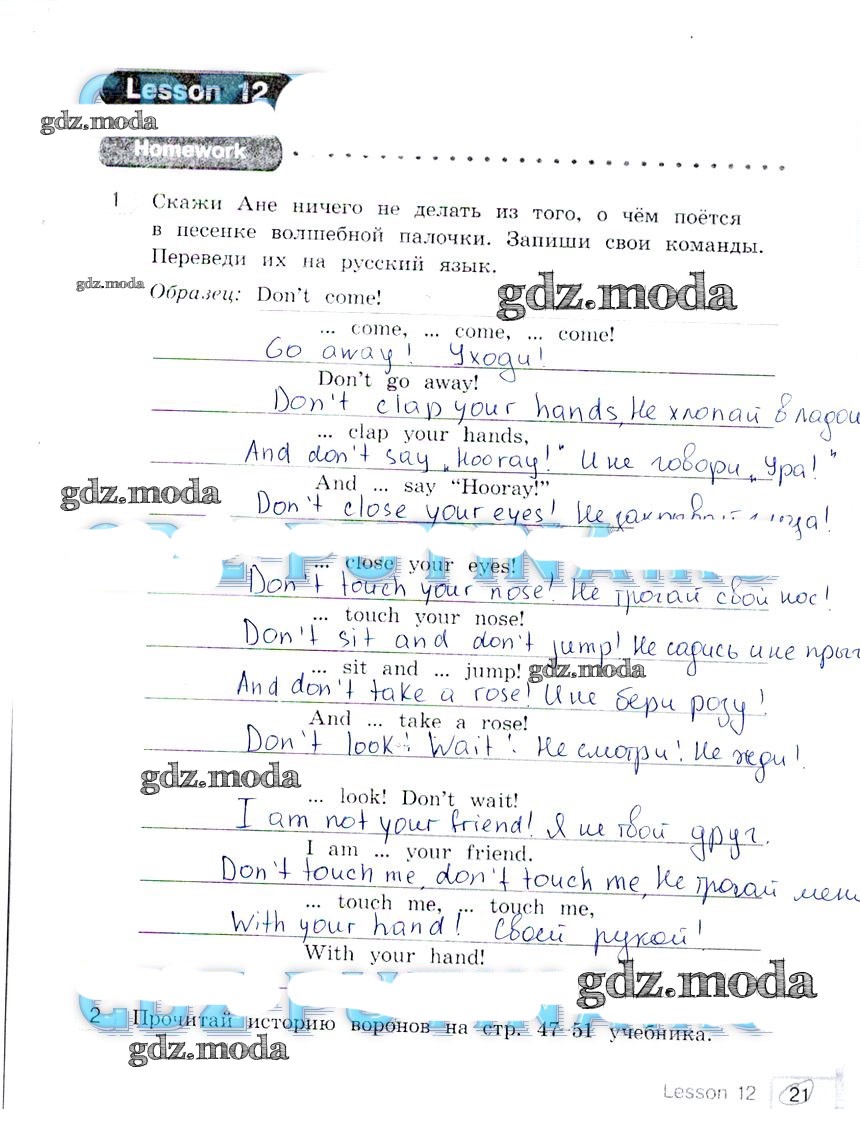 Lesson 12
gdz.moda
Homework
1 Скажи Ане ничего не делать из того, о чём поётся
в песенке волшебной палочки. Запиши свои команды.
Переведи их на русский язык.
gdz.moda
Образец: Don't come!
gdz.moda
... come, ... come, ... come!
Go away! Уходи!
Don't go away!
Don't clap your hands, Не хлопай в ладош
... clap your hands,
And don't say „Hooray!" И не говори „Ура!"
And ... say “Hooray!”
gdz.moda
Don't close your eyes! Не
... close your eyes!
Don't touch your nose! Не трогай свой нос!
... touch your nose!
Don't sit and don't jump! Не садись и не прыг
... sit and ... jump!
gdz.moda
And don't take a rose! И не бери розу!
And ... take a rose!
Don't look! Wait! Не смотри! Не жди!
gdz.moda
... look! Don't wait!
I am not your friend! Я не твой друг.
I am ... your friend.
Don't touch me, don't touch me, Не трогай мен
... touch me, ... touch me,
With your hand! Своей рукой!
With your hand!
gdz.moda
2 Прочитай историю воронов на стр. 47–51 учебника.
gdz.moda
Lesson 12 21